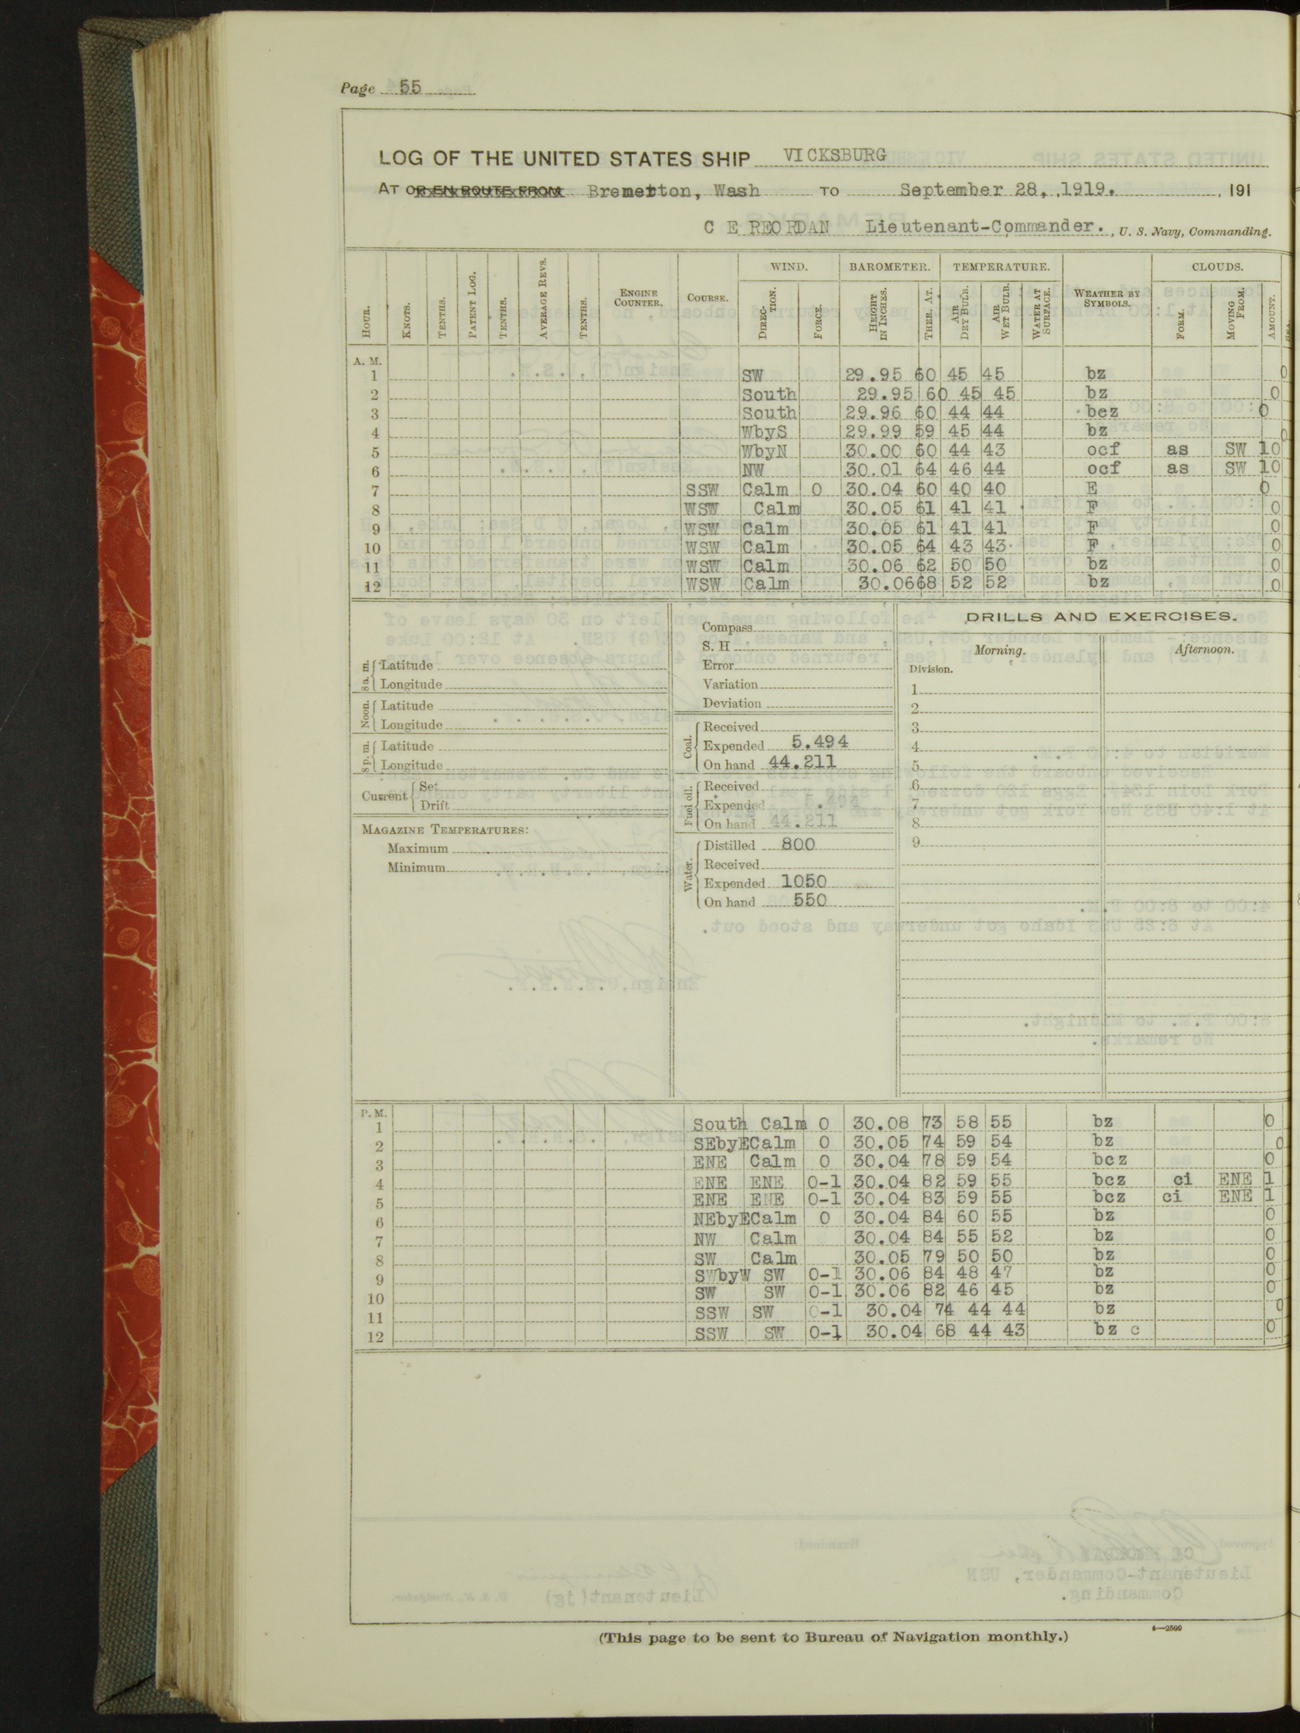 Page 55
LOG OF THE UNITED STATES SHIP VICKSBURG
AT OR EN ROUTE FROM Bremerton, Wash TO September 28, 1919. , 191
C E REORDAN Lieutenant-Commander. , U. S. Navy, Commanding.
HOUR. KNOTS. TENTHS. PATENT LOG. TENTHS. AVERAGE REVS. TENTHS. ENGINE COUNTER. COURSE. WIND. DIRECTION. FORCE. BAROMETER. HEIGHT IN INCHES. THER. AT. TEMPERATURE. AIR DRY BULB. AIR WET BULB. WATER AT SURFACE. WEATHER BY SYMBOLS. CLOUDS. FORM. MOVING FROM. AMOUNT.
A. M.
1 SW 29.95 60 45 45 bz 0
2 South 29.95 60 45 45 bz 0
3 South 29.96 60 44 44 bcz 0
4 WbyS 29.99 59 45 44 bz 0
5 WbyN 30.00 60 44 43 ocf as SW 10
6 NW 30.01 64 46 44 ocf as SW 10
7 SSW Calm 0 30.04 60 40 40 E 0
8 WSW Calm 30.05 61 41 41 F 0
9 WSW Calm 30.05 61 41 41 F 0
10 WSW Calm 30.05 64 43 43 F 0
11 WSW Calm 30.06 62 50 50 bz 0
12 WSW Calm 30.06 68 52 52 bz 0
8 a. m. Latitude
Longitude
Noon. Latitude
Longitude
8 p. m. Latitude
Longitude
Current Set
Drift
MAGAZINE TEMPERATURES:
Maximum
Minimum
Compass
S. H
Error
Variation
Deviation
Coal. Received
Expended 5.494
On hand 44.211
Fuel oil. Received
Expended 5.494
On hand 44.211
Water. Distilled 800
Received
Expended 1050
On hand 550
DRILLS AND EXERCISES.
Morning. Afternoon.
Division.
1
2
3
4
5
6
7
8
9
P. M.
1 South Calm 0 30.08 73 58 55 bz 0
2 SEbyE Calm 0 30.05 74 59 54 bz 0
3 ENE Calm 0 30.04 78 59 54 bcz 0
4 ENE ENE 0-1 30.04 82 59 55 bcz ci ENE 1
5 ENE ENE 0-1 30.04 83 59 55 bcz ci ENE 1
6 NEbyE Calm 0 30.04 84 60 55 bz 0
7 NW Calm 30.04 84 55 52 bz 0
8 SW Calm 30.05 79 50 50 bz 0
9 SWbyW SW 0-1 30.06 84 48 47 bz 0
10 SW SW 0-1 30.06 82 46 45 bz 0
11 SSW SW 0-1 30.04 74 44 44 bz 0
12 SSW SW 0-1 30.04 68 44 43 bz c 0
(This page to be sent to Bureau of Navigation monthly.)